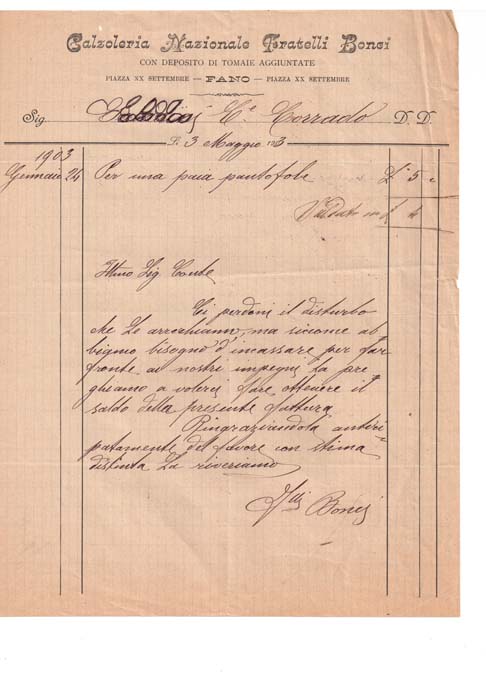 Calzoleria Nazionale Fratelli Bonci
CON DEPOSITO DI TOMAIE AGGIUNTATE
PIAZZA XX SETTEMBRE — FANO — PIAZZA XX SETTEMBRE
Sig. Cᵉ Corrado D. D.
Lì 3 Maggio 1903
1903
Gennaio 24 Per una paia pantofole £ 5
£ 4
Illmo Sig Conte
Ci perdoni il disturbo
che Le arrechiamo, ma siccome ab
bigmo bisogno d'incassare per far
fronte ai nostri impegni La pre
ghiamo a volerci fare ottenere il
saldo della presente fattura
Ringraziandola antici
patamente del favore con stima
distinta La riveriamo
Flli Bonci